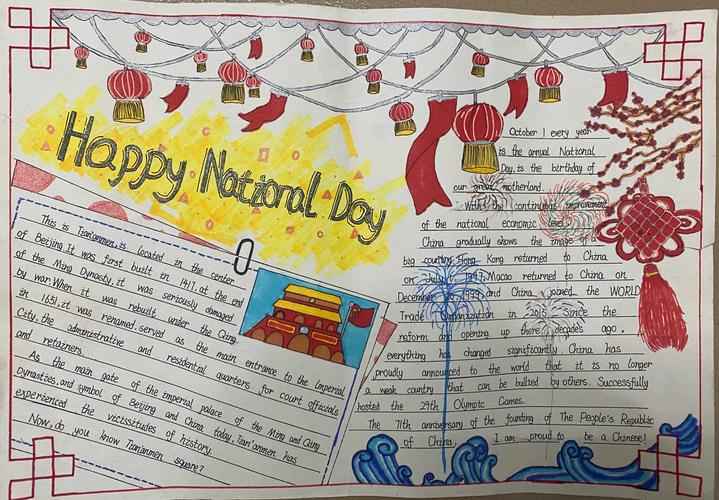 Happy National Day
This is Tian'anmen, is located in the center
of Beijing. It was first built in 1417, at the end
of the Ming Dynasty, it was seriously damaged
by war. When it was rebuilt under the Qing
in 1651, it was renamed. served as the main entrance to the Imperial
City, the administrative and residential quarters for court officials
and retainers.
As the main gate of the imperial palace of the Ming and Qing
Dynasties, and symbol of Beijing and China today, Tian'anmen has
experienced the vicissitudes of history.
Now, do you know Tian'anmen square?
October 1 every year
is the annual National
Day, is the birthday of
our great motherland.
With the continuous improvement
of the national economic level,
China gradually shows the image of a
big country. Hong Kong returned to China
on July 1, 1997, Macao returned to China on
December 1999 and China joined the WORLD
Trade Organization in 2015. Since the
reform and opening up there decades ago,
everything has changed significantly. China has
proudly announced to the world that it is no longer
a weak country that can be bullied by others. Successfully
hosted the 29th Olympic Games.
The 71th anniversary of the founding of The People's Republic
of China, I am proud to be a Chinese!